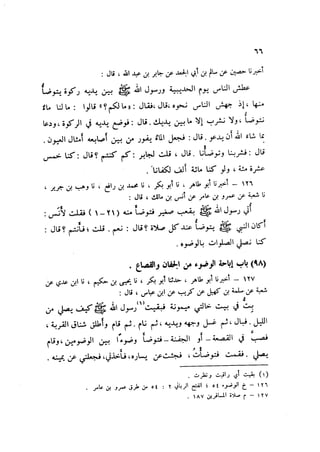 ٦٦
أخبرنا حصين عن سالم بن أبي الجعد عن جابر بن عبد الله ، قال :
عطش الناس يوم الحديبية ورسول الله ﷺ بين يديه ركوة يتوضأ
منها ، إذ جهش الناس نحوه ، قال ، فقال : « ما لكم ؟ » قالوا : ما لنا ماء
نتوضأ ، ولا نشرب إلا ما بين يديك . قال : فوضع يديه في الركوة ، ودعا
بما شاء الله أن يدعو . قال : فجعل الماء يفور من بين أصابعه أمثال العيون .
قال : فشربنا وتوضأنا . قال ، قلت لجابر : كم كنتم ؟ قال : كنا خمس
عشرة مئة ، ولو كنا مائة ألف لكفانا .
١٢٦ – أخبرنا أبو طاهر ، نا أبو بكر ، نا محمد بن رافع ، نا وهب بن جرير ،
نا شعبة عن عمرو بن عامر عن أنس بن مالك ، قال :
أتي رسول الله ﷺ بقعب صغير فتوضأ منه (٢١ – ١) فقلت لأنس :
أكان النبي ﷺ يتوضأ عند كل صلاة ؟ قال : نعم . قلت ، فأنتم ؟ قال :
كنا نصلي الصلوات بالوضوء .
(٩٨) باب إباحة الوضوء من الجفان والقصاع .
١٢٧ – أخبرنا أبو طاهر ، حدثنا أبو بكر ، نا يحيى بن حكيم ، نا ابن عدي عن
شعبة عن سلمة بن كهيل عن كريب عن ابن عباس ، قال :
بتّ في بيت خالتي ميمونة فبقيت(١) رسول الله ﷺ كيف يصلي من
الليل . فبال ، ثم غسل وجهه ويديه ، ثم نام . ثم قام وأطلق شناق القربة ،
فصبّ في القصعة – أو الجفنة – فتوضأ وضوءًا بين الوضوءين ، وقام
يصلي . فقمت فتوضأت ، فجئت عن يساره ، فأخذني ، فجعلني عن يمينه .
(١) بقيت أي راقبت ونظرت .
١٢٦ – خ الوضوء ٥٤ ؛ الفتح الرباني ٢ : ٥٤ من طرق عمرو بن عامر .
١٢٧ – م صلاة المسافرين ١٨٧ .